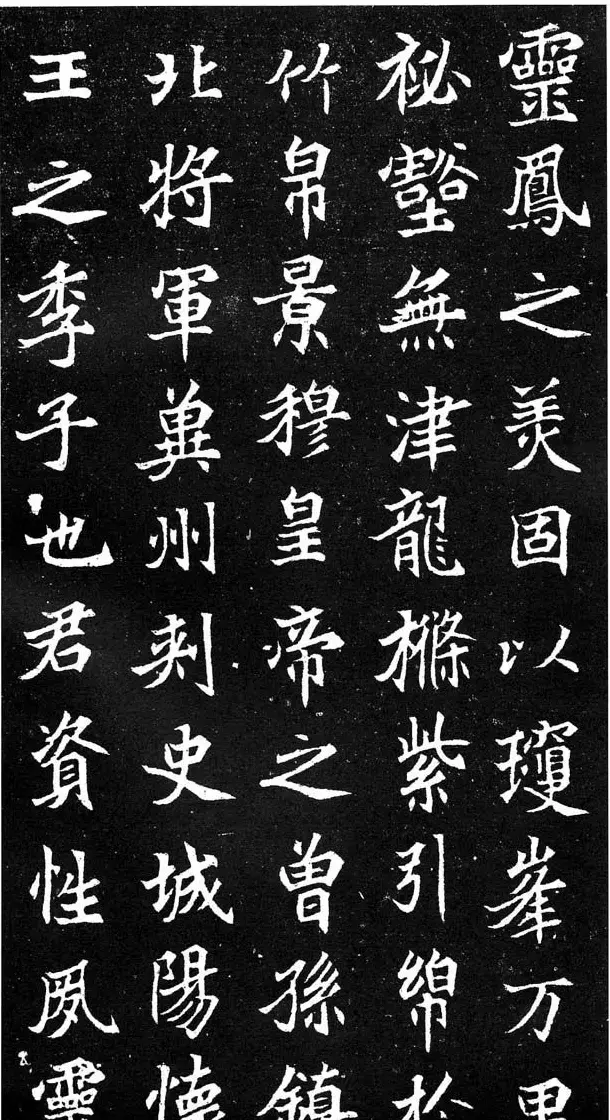 靈鳳之美固以瓊峯万里
祕壑無津龍橾紫引綿於
竹帛景穆皇帝之曾孫鎮
北將軍冀州刾史城陽懷
王之季子也君資性夙靈